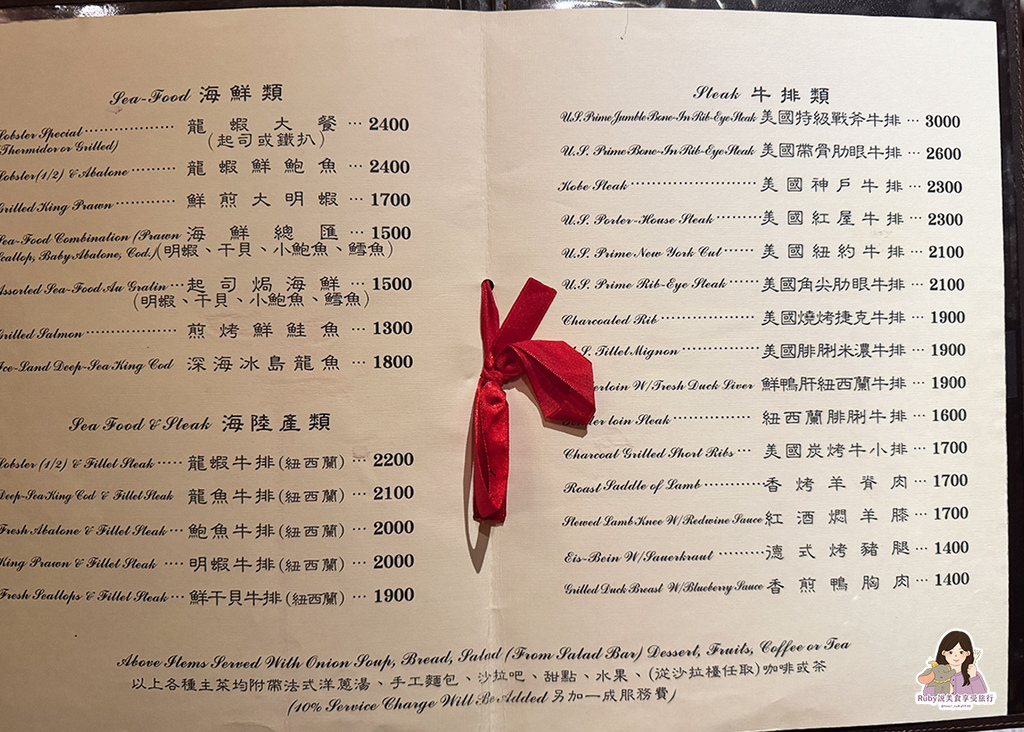 Sea-Food 海鮮類
Lobster Special 龍蝦大餐 2400
(Thermidor or Grilled) (起司或鐵扒)
Lobster (1/2) & Abalone 龍蝦鮮鮑魚 2400
Grilled King Prawn 鮮煎大明蝦 1700
Sea-Food Combination (Prawn 海鮮總匯 1500
Scallop, Baby Abalone, Cod.) (明蝦、干貝、小鮑魚、鱈魚)
Assorted Sea-Food Au Gratin 起司焗海鮮 1500
(明蝦、干貝、小鮑魚、鱈魚)
Grilled Salmon 煎烤鮮鮭魚 1300
Ice-Land Deep-Sea King Cod 深海冰島龍魚 1800
Sea Food & Steak 海陸產類
Lobster (1/2) & Fillet Steak 龍蝦牛排(紐西蘭) 2200
Deep-Sea King Cod & Fillet Steak 龍魚牛排(紐西蘭) 2100
Fresh Abalone & Fillet Steak 鮑魚牛排(紐西蘭) 2000
King Prawn & Fillet Steak 明蝦牛排(紐西蘭) 2000
Fresh Scallops & Fillet Steak 鮮干貝牛排(紐西蘭) 1900
Steak 牛排類
U.S. Prime Jumble Bone-In Rib-Eye Steak 美國特級戰斧牛排 3000
U.S. Prime Bone-In Rib-Eye Steak 美國帶骨肋眼牛排 2600
Kobe Steak 美國神戶牛排 2300
U.S. Porter-House Steak 美國紅屋牛排 2300
U.S. Prime New York Cut 美國紐約牛排 2100
U.S. Prime Rib-Eye Steak 美國角尖肋眼牛排 2100
Charcoaled Rib 美國燒烤捷克牛排 1900
U.S. Tillet Mignon 美國腓脷米濃牛排 1900
W/Fresh Duck Liver 鮮鴨肝紐西蘭牛排 1900
loin Steak 紐西蘭腓脷牛排 1600
Charcoat Grilled Short Ribs 美國炭烤牛小排 1700
Roast Saddle of Lamb 香烤羊脊肉 1700
Stewed Lamb Knee W/Redwine Sauce 紅酒燜羊膝 1700
Eis-Bein W/Sauerkraut 德式烤豬腿 1400
Grilled Duck Breast W/Blueberry Sauce 香煎鴨胸肉 1400
Above Items Served With Onion Soup, Bread, Salad (From Salad Bar) Dessert, Fruits, Coffee or Tea
以上各種主菜均附帶法式洋蔥湯、手工麵包、沙拉吧、甜點、水果、(從沙拉檯任取)咖啡或茶
(10% Service Charge Will Be Added 另加一成服務費)
Ruby說美食享受旅行